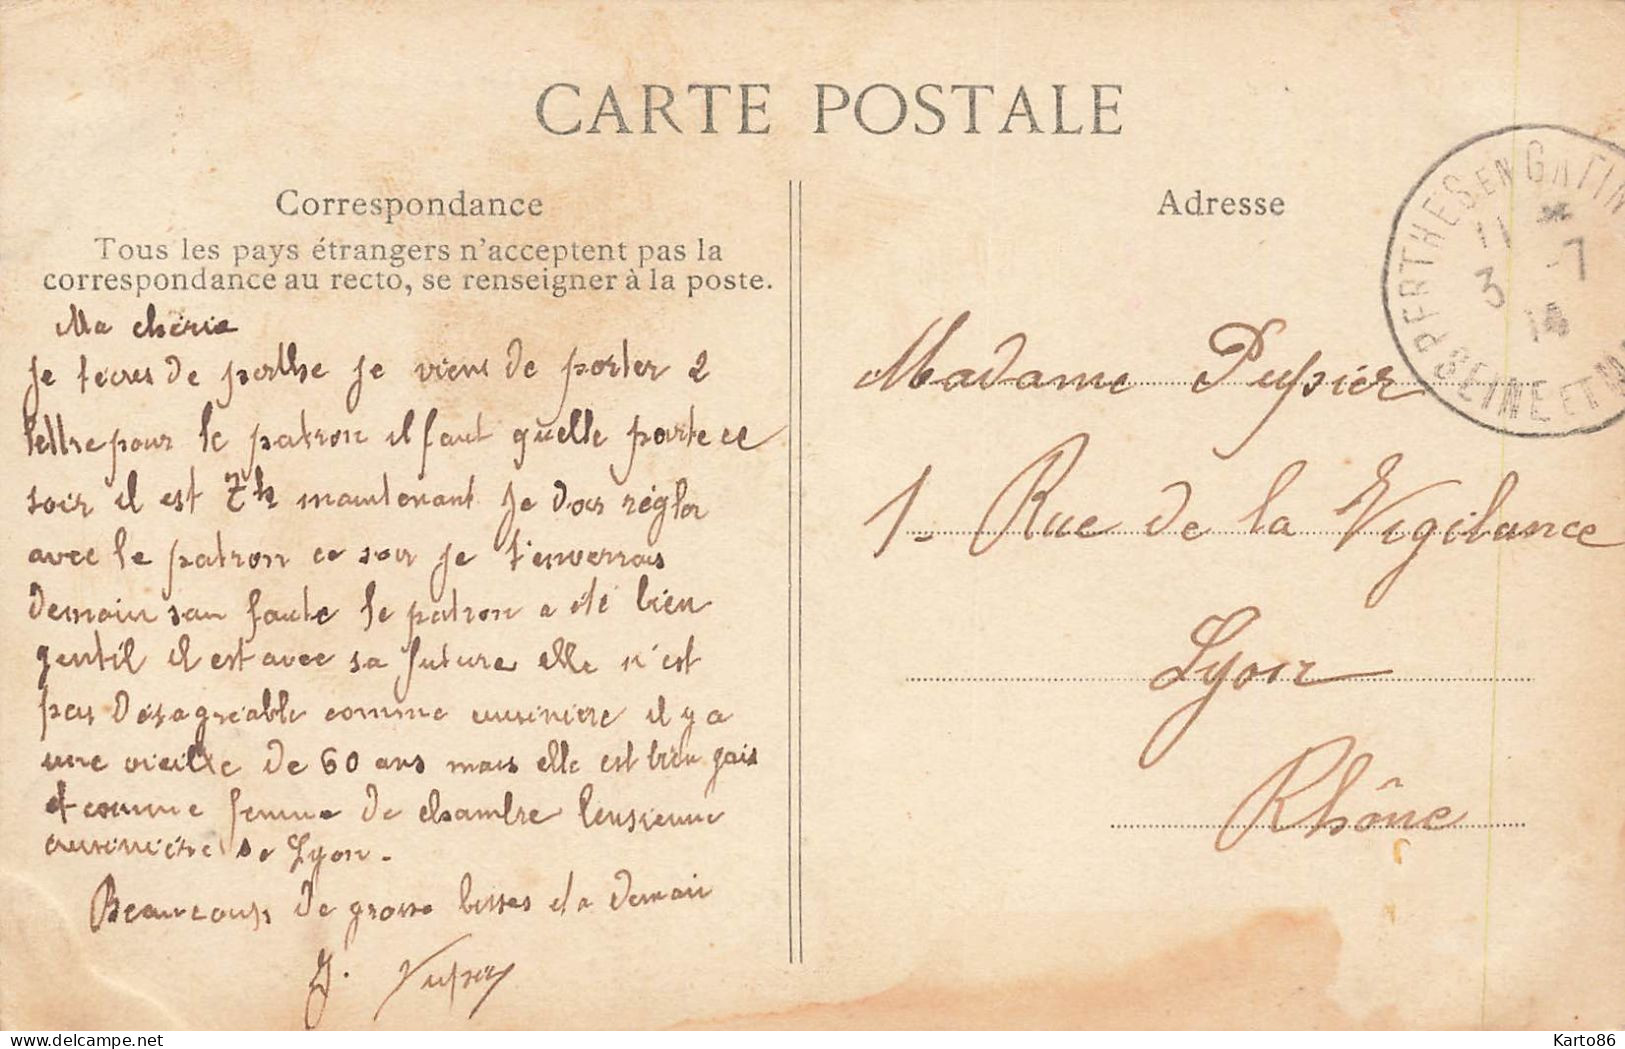 CARTE POSTALE
Correspondance
Tous les pays étrangers n'acceptent pas la
correspondance au recto, se renseigner à la poste.
Ma cherie
Je técris de perthe je viens de porter 2
lettre pour le patron il faut quelle parte ce
soir il est 7h maintenant je dois régler
avec le patron ce soir je t'enverrais
demain san faute le patron a été bien
gentil il est avec sa future elle n'est
pas désagréable comme cuisiniere il y a
une vieille de 60 ans mais elle est bien gais
et comme femme de chambre lensienne
cuisinière de Lyon.
Beaucoup de grosse bisses et a demain
J. Pupier
Adresse
Madame Pupier
1. Rue de la Vigilance
Lyon
Rhône
PERTHES EN GATIN
11 * 
3 -7
14
SEINE ET M
Karto86
delcampe.net